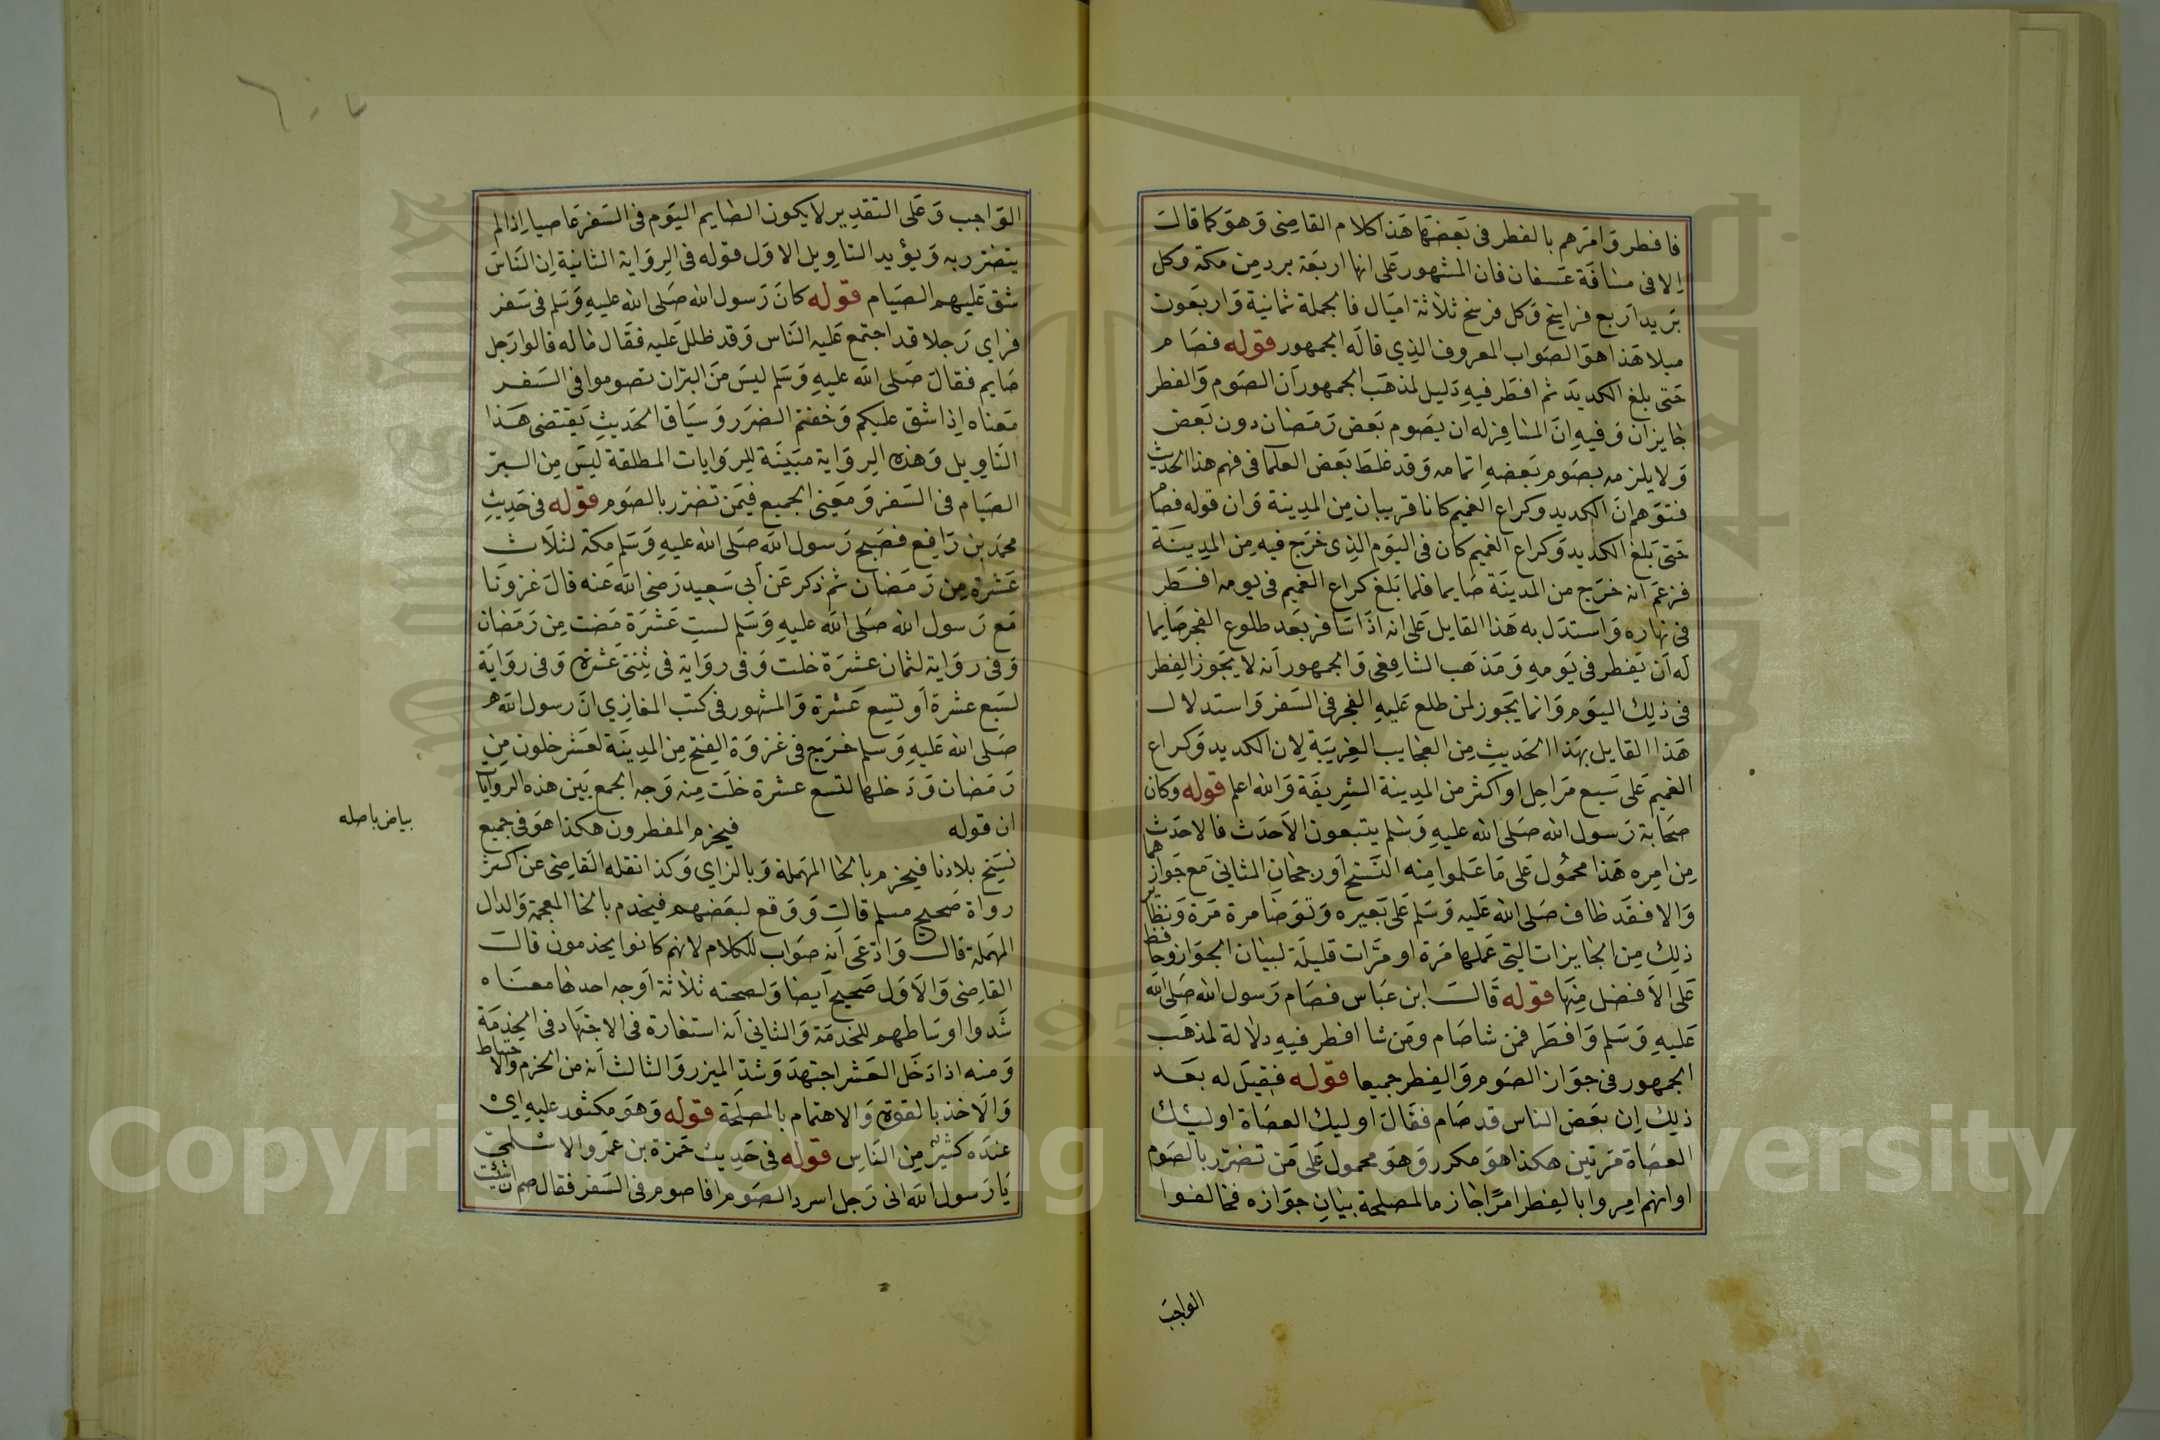 فافطر وامرهم بالفطر في بعضها هذا كلام القاضي وهو كما قالت
الا في مسافة عسفان فان المشهور على انها اربعة برد من مكة وكل
بريد اربع فراسخ وكل فرسخ ثلاثة اميال فالجملة ثمانية واربعون
ميلا هذا هو الصواب المعروف الذي قاله الجمهور قوله فصام
حتى بلغ الكديد ثم افطر فيه دليل لمذهب الجمهور ان الصوم والفطر
جايزان وفيه ان المسافر له ان يصوم بعض رمضان دون بعض
ولا يلزمه بصوم بعضه اتمامه وقد غلط بعض العلما في فهم هذا الحديث
فتوهم ان الكديد وكراع الغميم كانا قريبان من المدينة وان قوله فصام
حتى بلغ الكديد وكراع الغميم كان في اليوم الذي خرج فيه من المدينة
فزعم انه خرج من المدينة صايما فلما بلغ كراع الغميم في يومه افطر
في نهاره واستدل به هذا القايل على انه اذا سافر بعد طلوع الفجر صايما
له ان يفطر في يومه ومذهب الشافعي والجمهور انه لا يجوز الفطر
في ذلك اليوم وانما يجوز لمن طلع عليه الفجر في السفر واستدلال
هذا القايل بهذا الحديث من العجايب الغريبة لان الكديد وكراع
الغميم على سبع مراحل او اكثر من المدينة الشريفة والله اعلم قوله وكان
صحابة رسول الله صلى الله عليه وسلم يتبعون الاحدث فالاحدث
من امره هذا محمول على ما علموا منه النسخ او رجحان الثاني مع جوازهما
والا فقد طاف صلى الله عليه وسلم على بعيره وتوضا مرة مرة ونظاير
ذلك من الجايزات التي عملها مرة او مرات قليلة لبيان الجواز وحافظ
على الافضل منها قوله قالت ابن عباس فصام رسول الله صلى الله
عليه وسلم وافطر فمن شا صام ومن شا افطر فيه دلالة لمذهب
الجمهور في جواز الصوم والفطر جميعا قوله فقيل له بعد
ذلك ان بعض الناس قد صام فقال اوليك العصاة اوليك
العصاة مرتين هكذا هو مكرر وهو محمول على من تضرر بالصوم
او انهم امروا بالفطر امرا جازما لمصلحة بيان جوازه فخالفوا
الواجب
٦٠٧
الواجب وعلى التقدير لا يكون الصايم اليوم في السفر عاصيا اذا لم
يتضرر به ويؤيد التاويل الاول قوله في الرواية الثانية ان الناس
شق عليهم الصيام قوله كان رسول الله صلى الله عليه وسلم في سفر
فراي رجلا قد اجتمع عليه الناس وقد ظلل عليه فقال ماله قالوا رجل
صايم فقال صلى الله عليه وسلم ليس من البر ان تصوموا في السفر
معناه اذا شق عليكم وخفتم الضرر وسياق الحديث يقتضي هذا
التاويل وهذه الرواية مبينة للروايات المطلقة ليس من البر
الصيام في السفر ومعنى الجميع فيمن تضرر بالصوم قوله في حديث
محمد بن رافع فصبح رسول الله صلى الله عليه وسلم مكة لثلاث
عشرة من رمضان ثم ذكر عن ابي سعيد رضي الله عنه قال غزونا
مع رسول الله صلى الله عليه وسلم لست عشرة مضت من رمضان
وفي رواية لثمان عشرة خلت وفي رواية في ثنتي عشرة وفي رواية
لسبع عشرة او تسع عشرة والمشهور في كتب المغازي ان رسول الله
صلى الله عليه وسلم خرج في غزوة الفتح من المدينة لعشر خلون من
رمضان ودخلها لتسع عشرة خلت منه وجه الجمع بين هذه الروايات
ان قوله فيحزم المفطرون هكذا هو في جميع
بياض باصله
نسخ بلادنا فيحزم بالحا المهملة وبالزاي وكذا نقله القاضي عن اكثر
رواة صحيح مسلم قالت ووقع لبعضهم فيخدم بالخا المعجمة والدال
المهملة قالت وادعى انه صواب للكلام لانهم كانوا يخدمون قالت
القاضي والاول صحيح ايضا ولصحته ثلاثة اوجه احدها معناه
شدوا اوساطهم للخدمة والثاني انه استعارة في الاجتهاد في الخدمة
ومنه اذا دخل العشر اجتهد وشد الميزر والثالث انه من الحزم والاحتياط
والاخذ بالقوة والاهتمام بالمصلحة قوله وهو مكثور عليه اي
عنده كثير من الناس قوله في حديث حمزة بن عمرو الاسلمي
يا رسول الله اني رجل اسرد الصوم افاصوم في السفر فقال صم ان شيت
Copyright © King Saud University